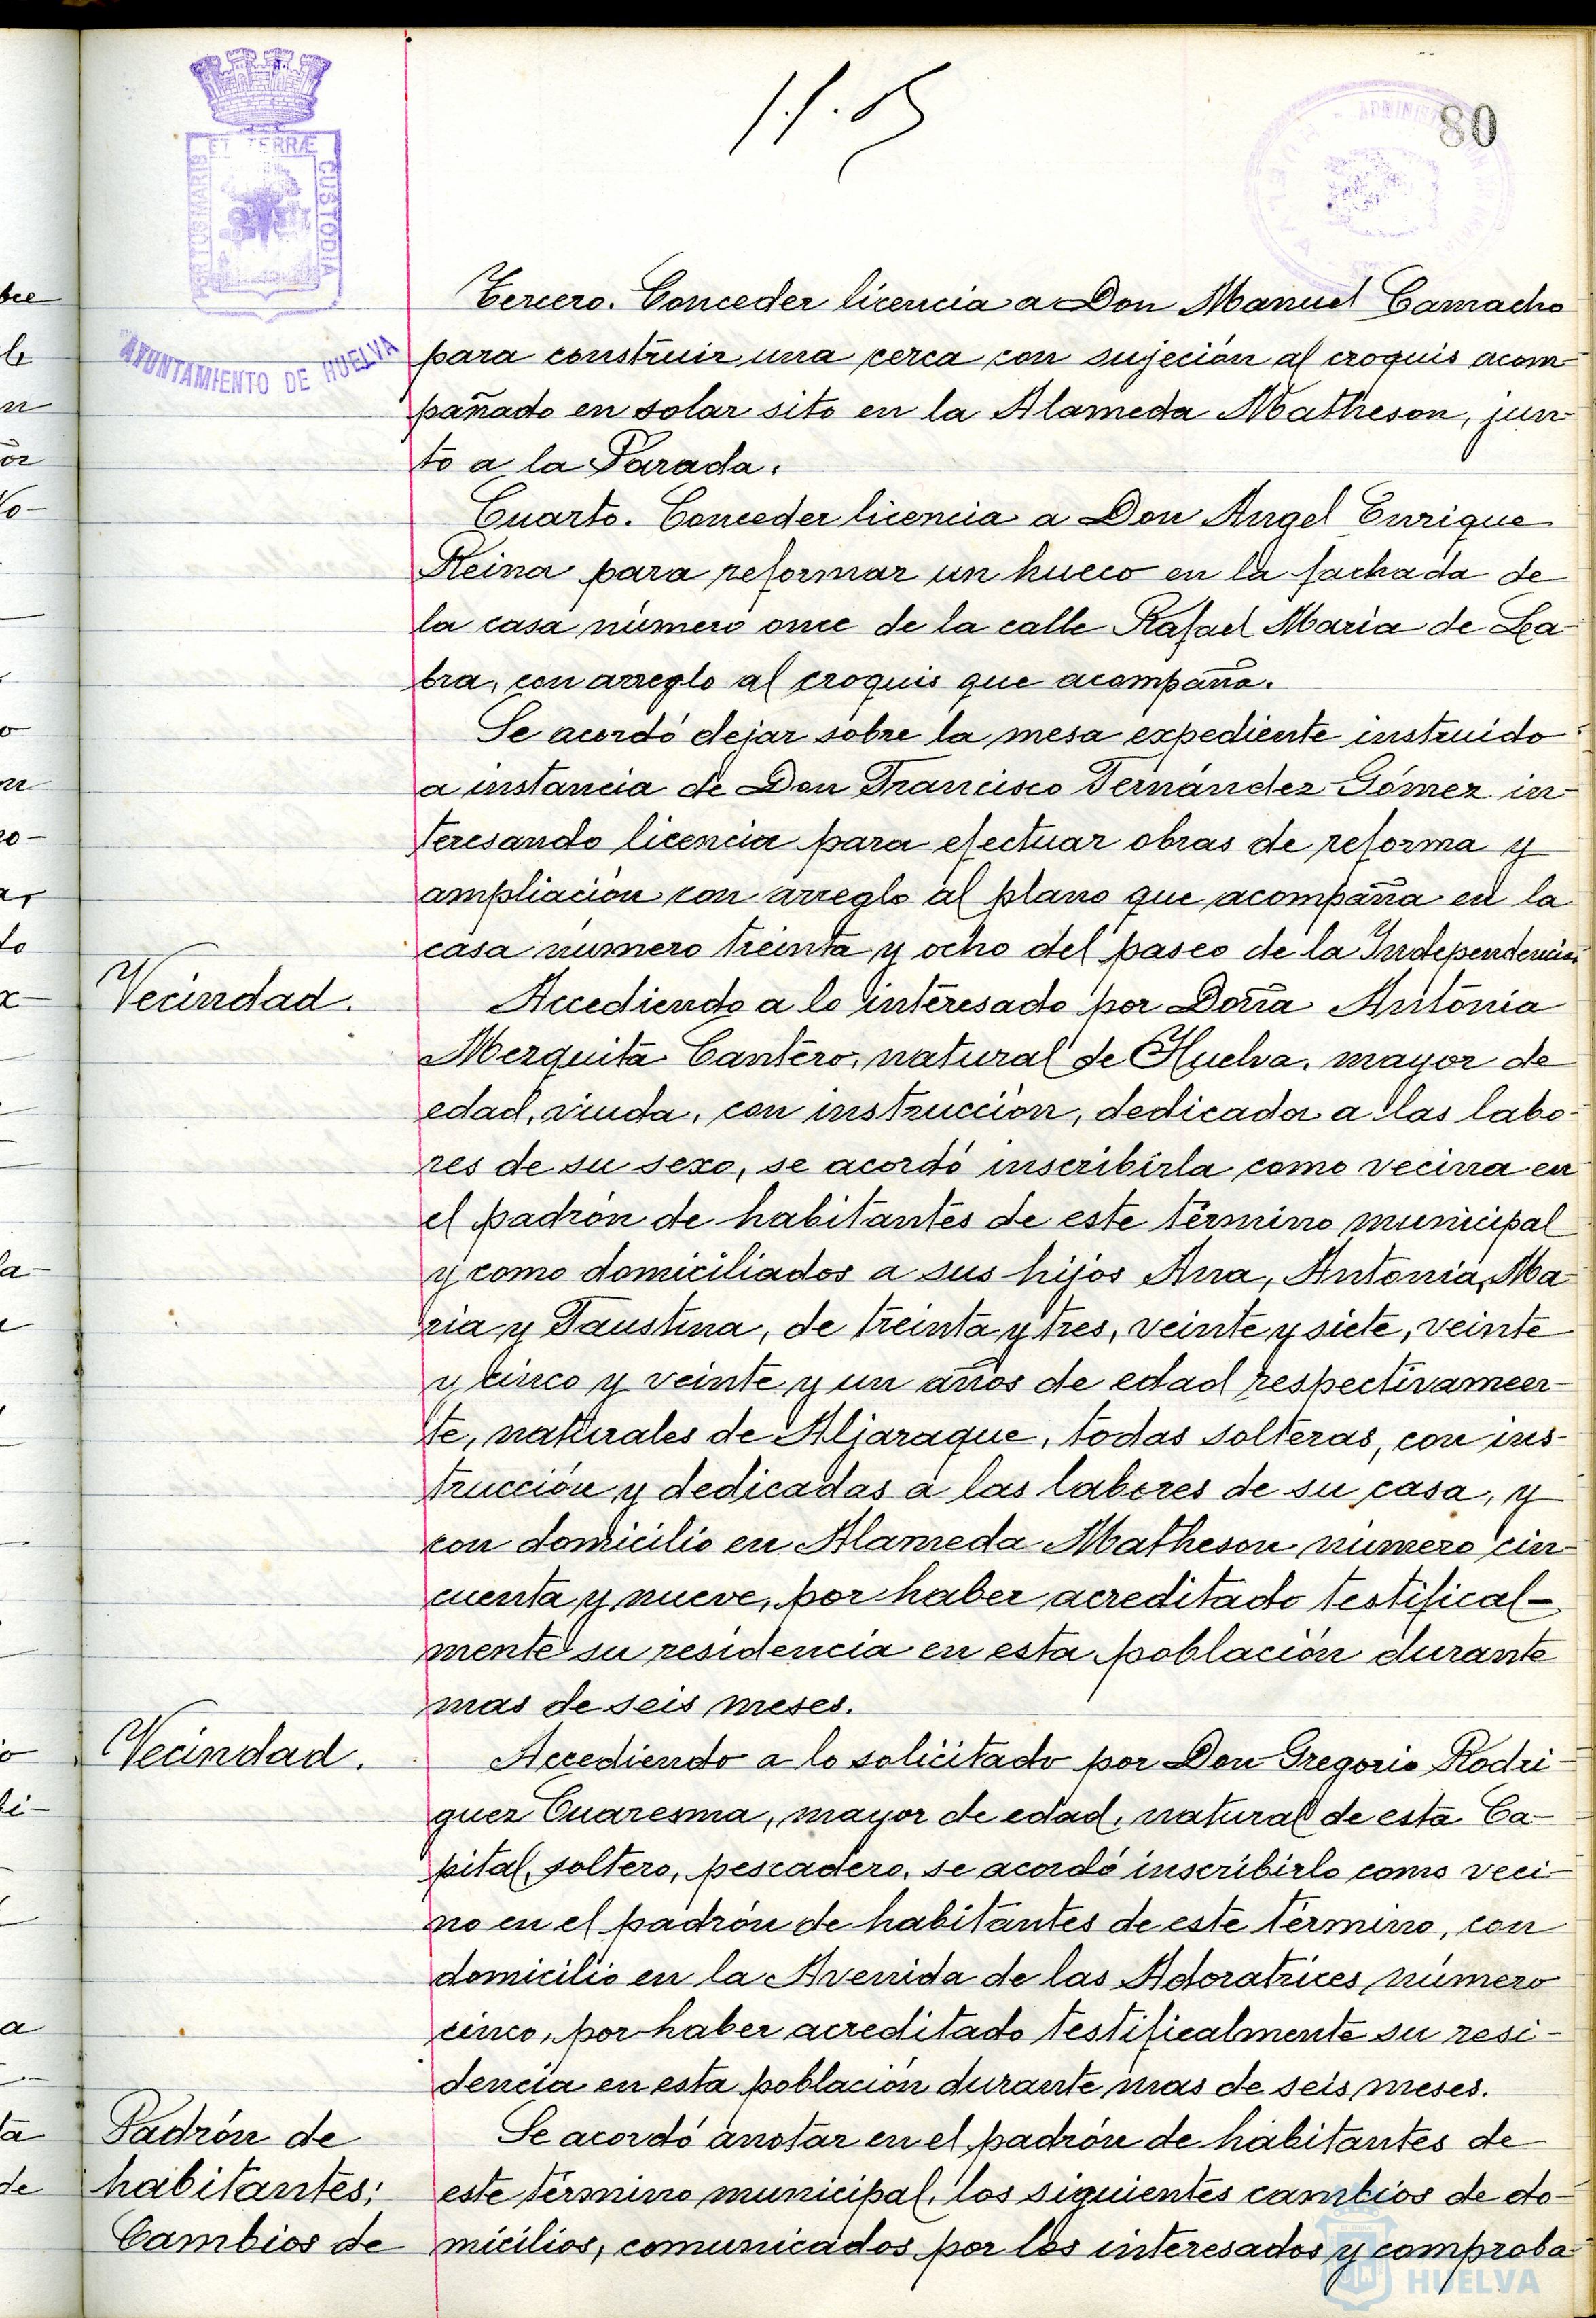 80
ET TERRÆ
PORTUS MARIS
CUSTODIA
AYUNTAMIENTO DE HUELVA
Tercero. Conceder licencia a Don Manuel Camacho
para construir una cerca con sujeción al croquis acom
pañado en solar sito en la Alameda Matheson, jun-
to a la Parada.
Cuarto. Conceder licencia a Don Angel Enrique
Reina para reformar un hueco en la fachada de
la casa número once de la calle Rafael Maria de La-
bra, con arreglo al croquis que acompaña.
Se acordó dejar sobre la mesa expediente instruido
a instancia de Don Francisco Fernández Gómez in-
teresando licencia para efectuar obras de reforma y
ampliación con arreglo al plano que acompaña en la
casa número treinta y ocho del paseo de la Independencia.
Vecindad.
Accediendo a lo interesado por Doña Antonia
Mezquita Cantero, natural de Huelva, mayor de
edad, viuda, con instrucción, dedicada a las labo-
res de su sexo, se acordó inscribirla como vecina en
el padrón de habitantes de este término municipal
y como domiciliados a sus hijos Ana, Antonia, Ma
ria y Faustina, de treinta y tres, veinte y siete, veinte
y cinco y veinte y un años de edad respectivameen-
te, naturales de Aljaraque, todas solteras, con ins-
trucción y dedicadas a las labores de su casa, y
con domicilio en Alameda Matheson número cin
cuenta y nueve, por haber acreditado testifical-
mente su residencia en esta población durante
mas de seis meses.
Vecindad.
Accediendo a lo solicitado por Don Gregorio Rodri-
guez Cuaresma, mayor de edad, natural de esta Ca-
pital, soltero, pescadero, se acordó inscribirlo como veci-
no en el padrón de habitantes de este término, con
domicilio en la Avenida de las Adoratrices número
cinco, por haber acreditado testificalmente su resi-
dencia en esta población durante mas de seis meses.
Padrón de
habitantes;
Cambios de
Se acordó anotar en el padrón de habitantes de
este término municipal, los siguientes cambios de do-
micilios, comunicados por los interesados y comproba-
HUELVA